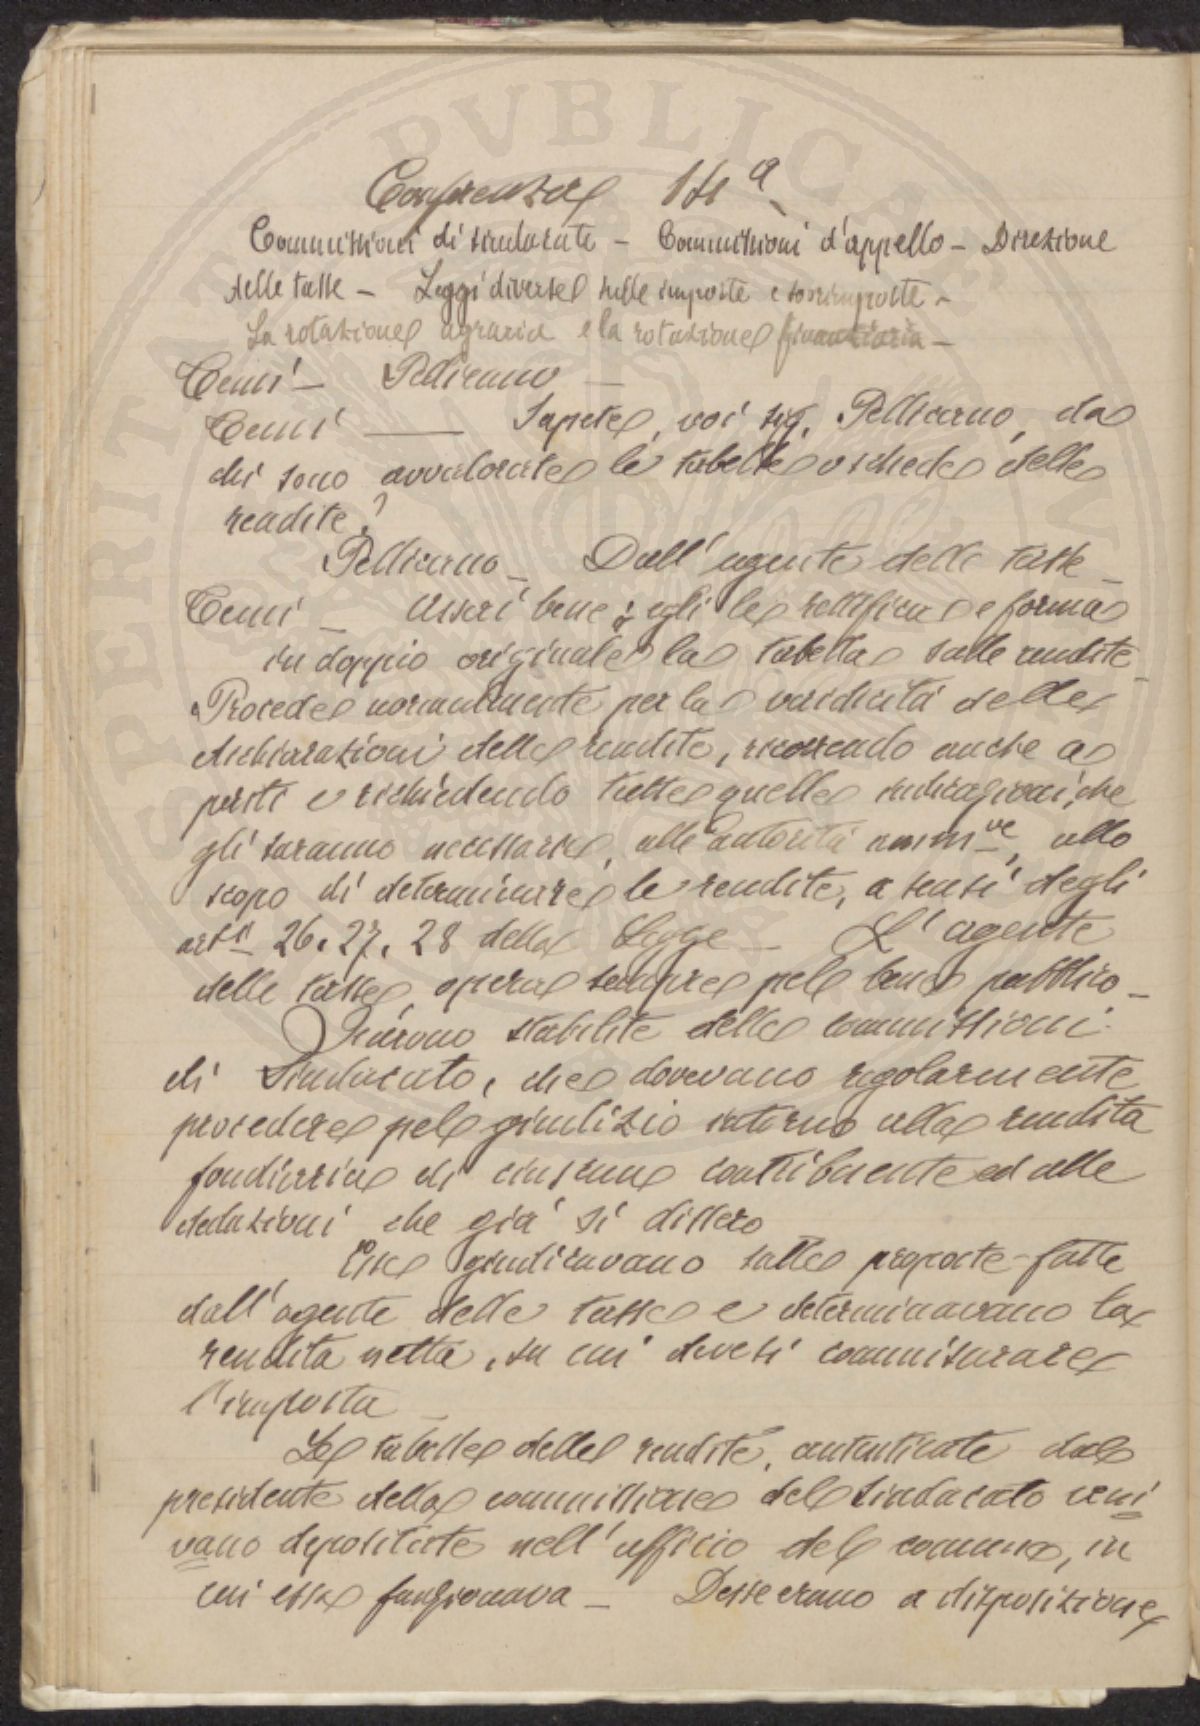 Conferenza 14ª
Commissioni di sindacato – Commissioni d'appello – Direzione
delle tasse – Leggi diverse sulle imposte e sovrimposte –
La rotazione agraria e la rotazione finanziaria –
Cenci – Pellicano –
Cenci — Sapete, voi sig. Pellicano, da
chi sono avvalorate le tabelle o schede delle
rendite?
Pellicano – Dall'agente delle tasse –
Cenci – Assai bene; egli le rettifica e forma
in doppio originale la tabella sulle rendite –
Procede normalmente per la veridicità delle
dichiarazioni delle rendite, ricorrendo anche a
periti e richiedendo tutte quelle indicazioni, che
gli saranno necessarie, alle autorità amm.ve, allo
scopo di determinare le rendite, a sensi degli
arti 26. 27. 28 della Legge – L'agente
delle tasse opera sempre pel bene pubblico –
Furono stabilite delle commissioni
di Sindacato, che dovevano regolarmente
procedere pel giudizio intorno alla rendita
fondiaria di ciascun contribuente ed alle
deduzioni che già si dissero
Esse giudicavano sulle proposte fatte
dall'agente delle tasse e determinavano la
rendita netta, su cui devesi commisurare
l'imposta –
Le tabelle delle rendite, autenticate dal
presidente della commissione del sindacato veni
vano depositate nell'ufficio del comune, in
cui essa funzionava – Desse erano a disposizione